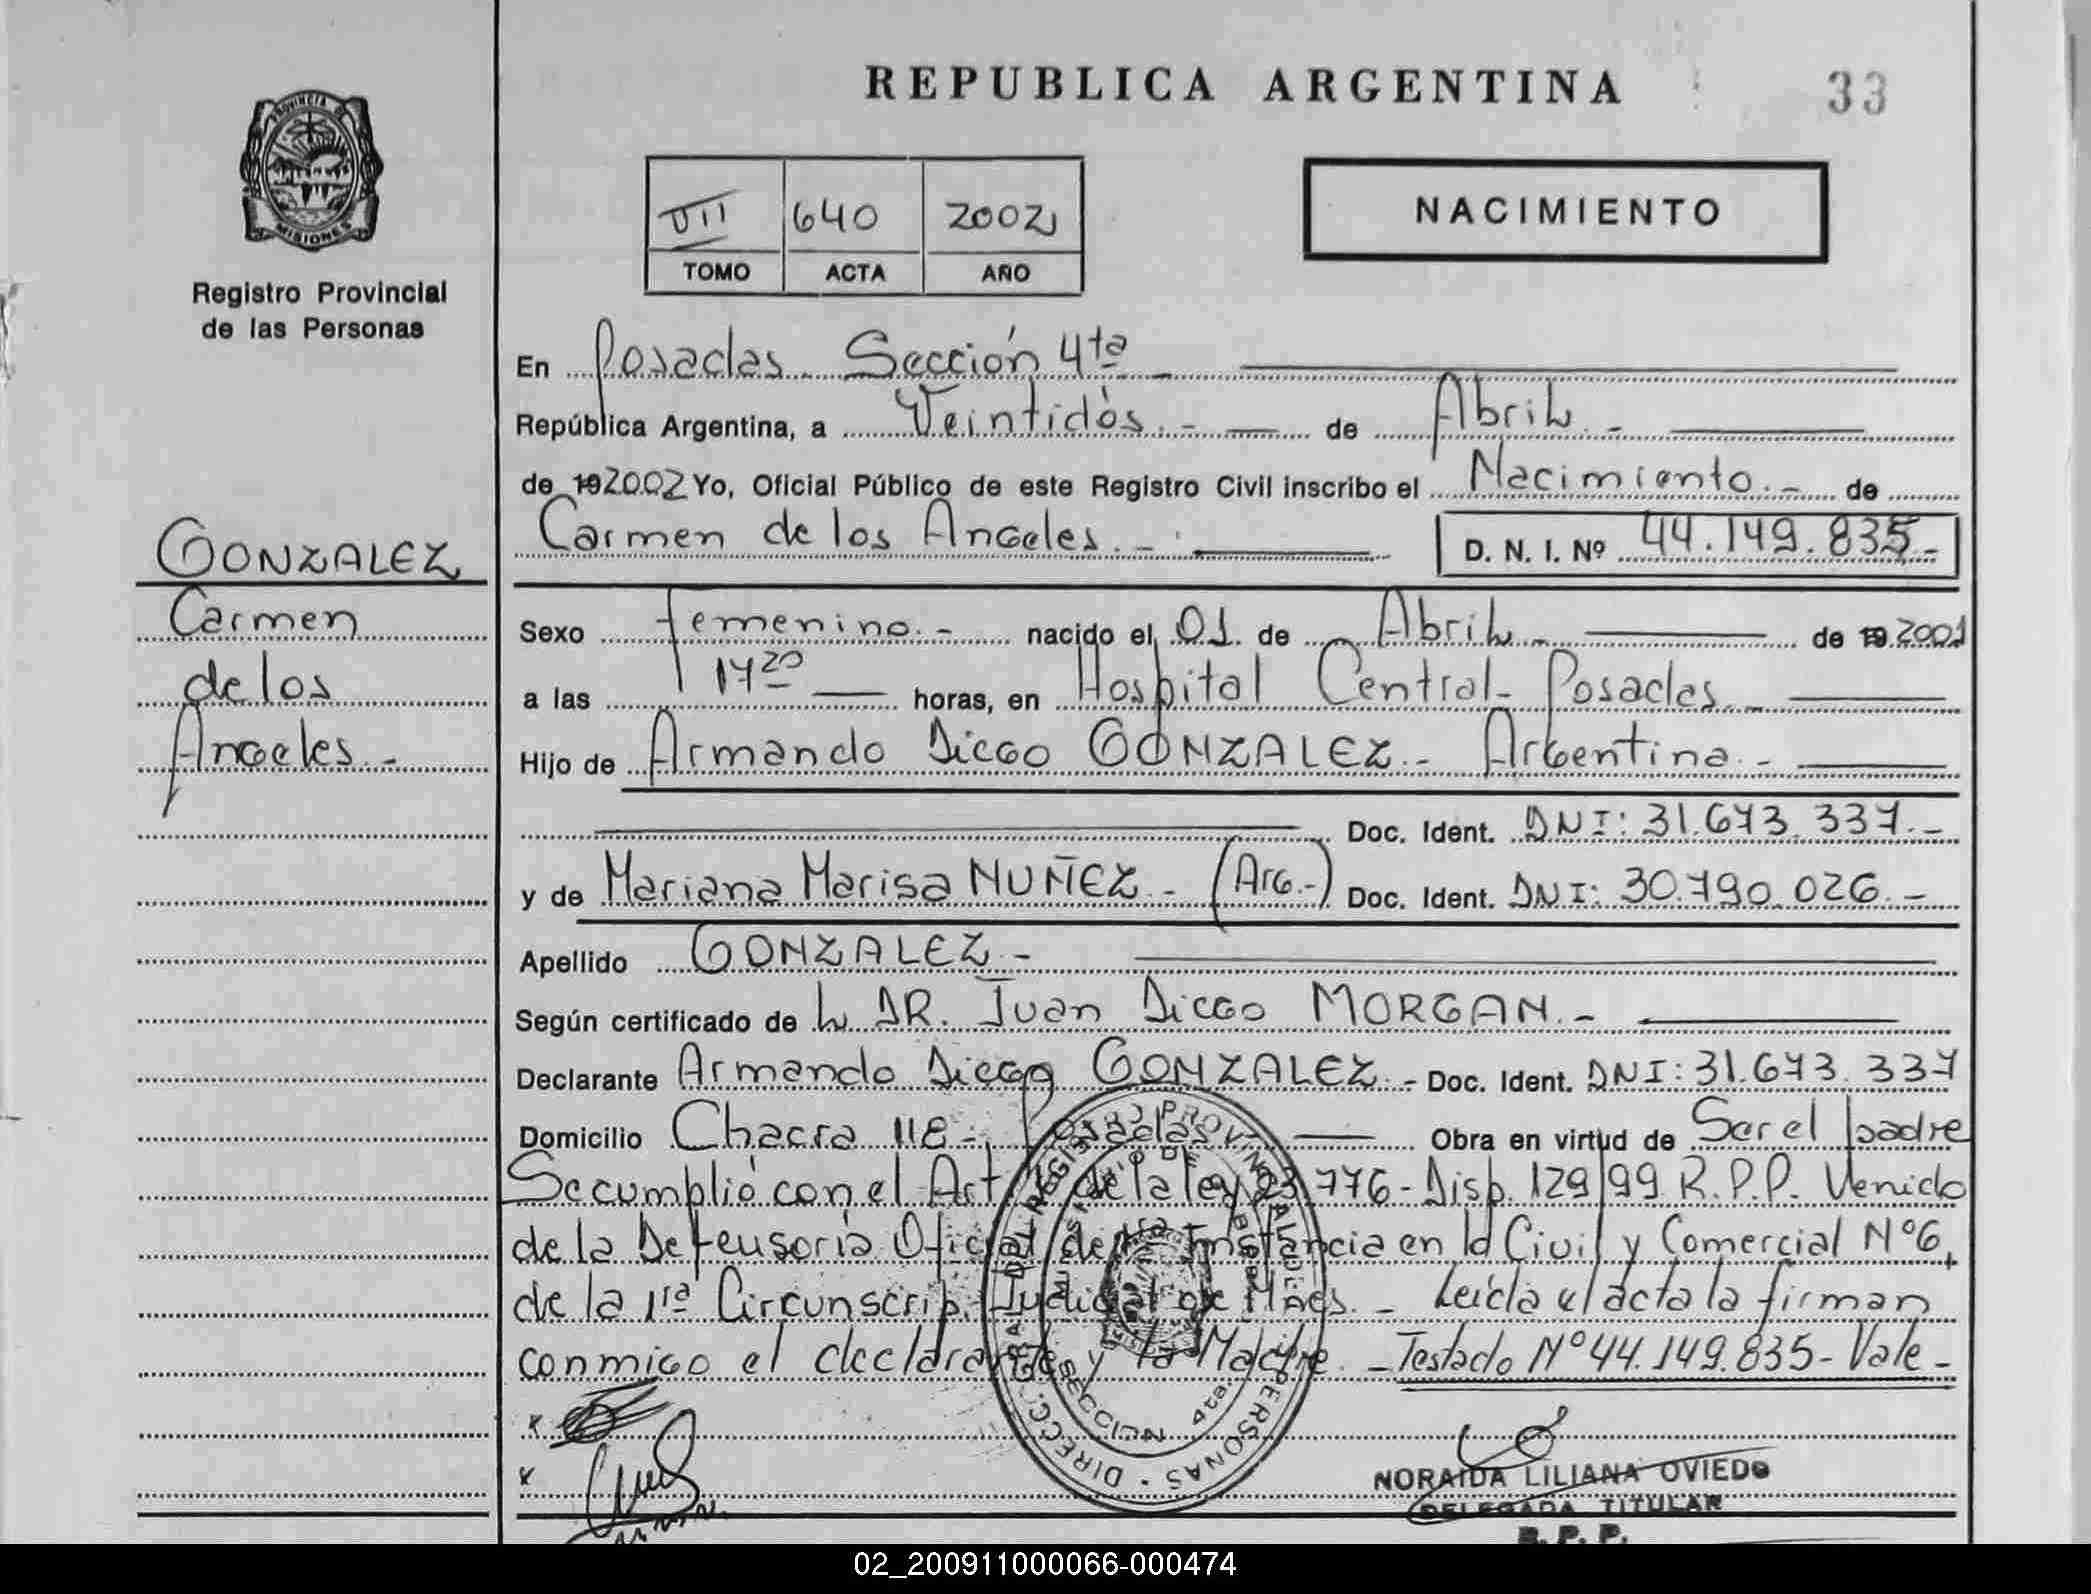 REPUBLICA ARGENTINA 33
PROVINCIA DE
MISIONES
VII 640 2002
TOMO ACTA AÑO
NACIMIENTO
Registro Provincial
de las Personas
En Posadas Sección 4ta
República Argentina, a Veintidós.- de Abril.-
de 19 2002 Yo, Oficial Público de este Registro Civil inscribo el Nacimiento.- de
Carmen de los Angeles.- D. N. I. Nº 44.149.835-
GONZALEZ
Carmen
de los
Angeles.-
Sexo femenino.- nacido el 01 de Abril.- de 19 2001
a las 17 20 horas, en Hospital Central- Posadas.-
Hijo de Armando Diego GONZALEZ.- Argentina.-
Doc. Ident. DNI: 31.673.337.-
y de Mariana Marisa NUÑEZ.- (Arg.-) Doc. Ident. DNI: 30.790.026.-
Apellido GONZALEZ.-
Según certificado de L DR. Juan Diego MORGAN.-
Declarante Armando Diego GONZALEZ.- Doc. Ident. DNI: 31.673.337
Domicilio Chacra 118-, Posadas Obra en virtud de Ser el padre
Se cumplió con el Art de la ley 23.776- Disp. 129/99 R.P.P. Venido
de la Defensoria Oficial de Instancia en ld Civil y Comercial Nº6,
de la 1ra Circunscrip. Judicial de Mnes.- Leida el acta la firman
conmigo el declarante y la Madre.- Testado Nº 44.149.835- Vale-
DIRECC. GRAL. DEL REGISTRO PROVINCIAL DE PERSONAS
SECCION 4ta.
NORAIDA LILIANA OVIEDO
DELEGADA TITULAR
R. P. P.
02_200911000066-000474